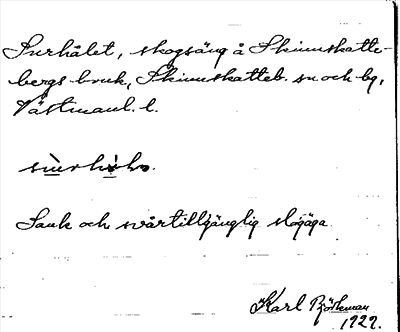 Surhålet, skogsäng å Skinnskatte-
bergs bruk, Skinnskatteb. sn och bg,
Västmanl. l.
Sank och svårtillgänglig slogäga.
Karl Björkman
1929.